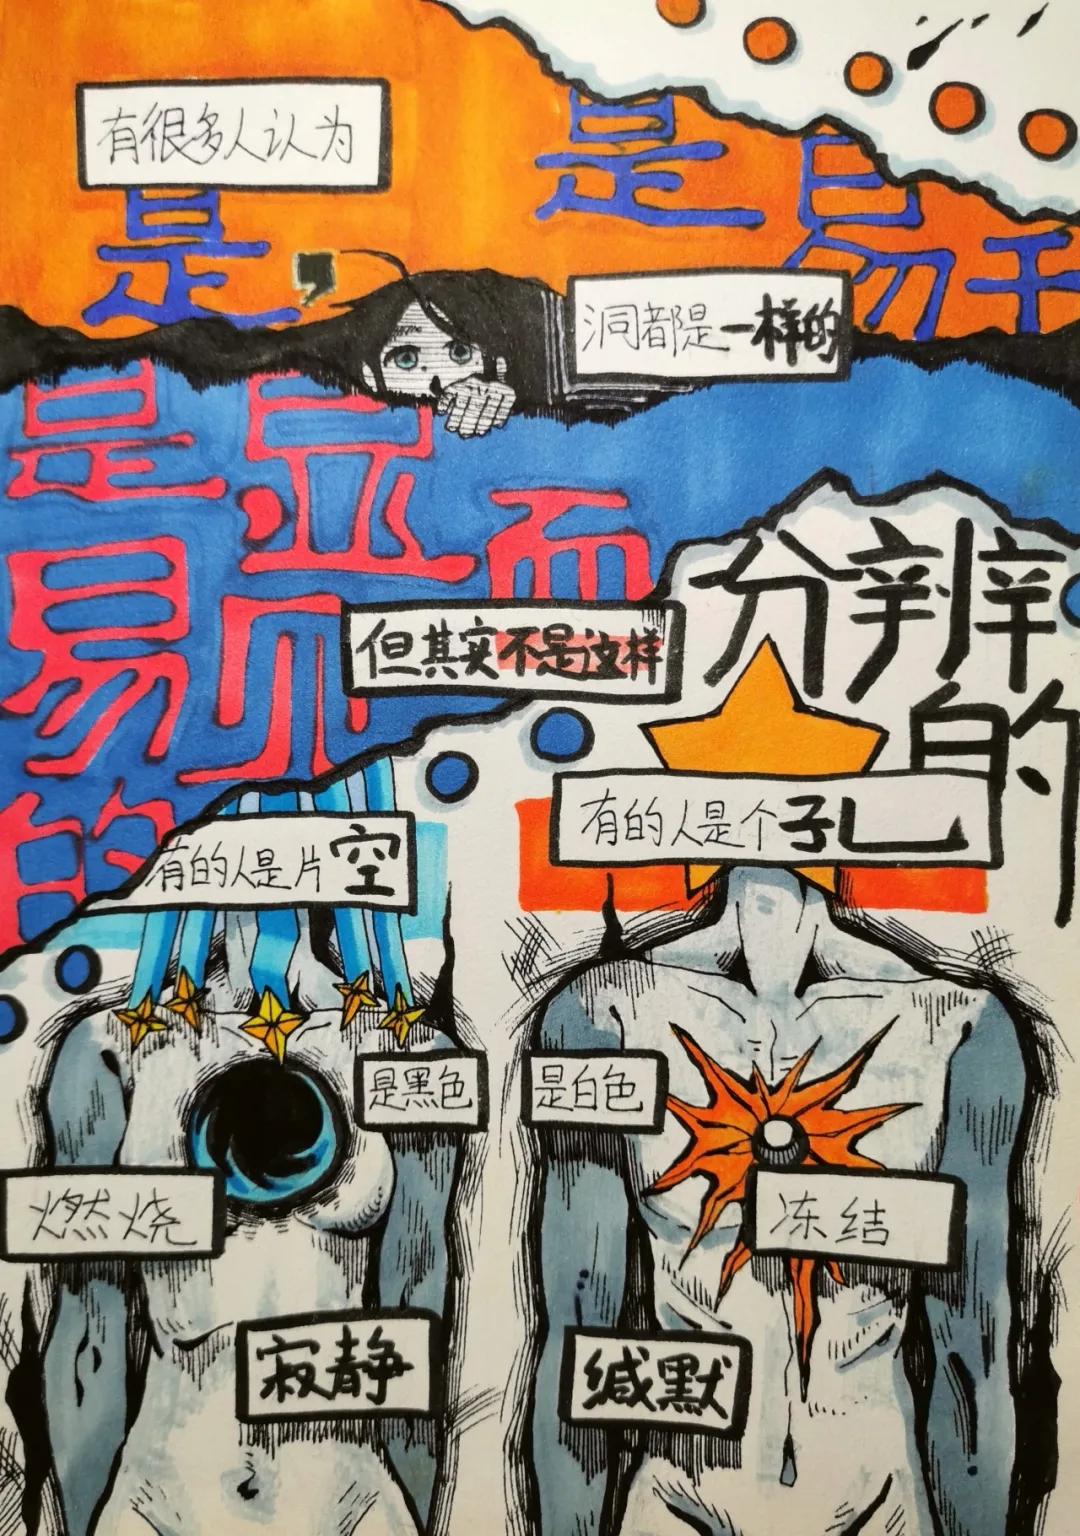 有很多人认为
是，
是易于
洞都是一样的
是显而
易见
的
但其实不是这样
分辨
的
有的人是片空
有的人是个孔
是黑色
是白色
燃烧
冻结
寂静
缄默